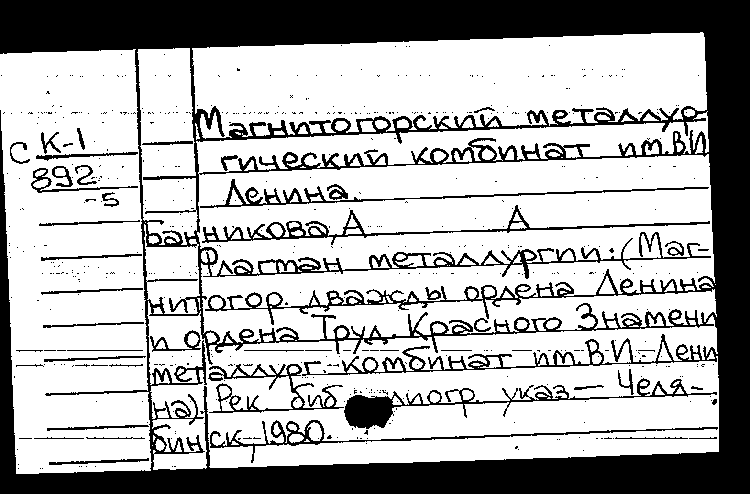 Магнитогорский металлур-
С К-1
гический комбинат им. В.И
892
-5
Ленина.
Банникова, А А
Флагман металлургии: (Маг-
нитогор. дважды ордена Ленина
и ордена Труд. Красного Знамени
металлург. комбинат им. В.И. Лени
на). Рек. библиогр. указ. — Челя-
бинск, 1980.